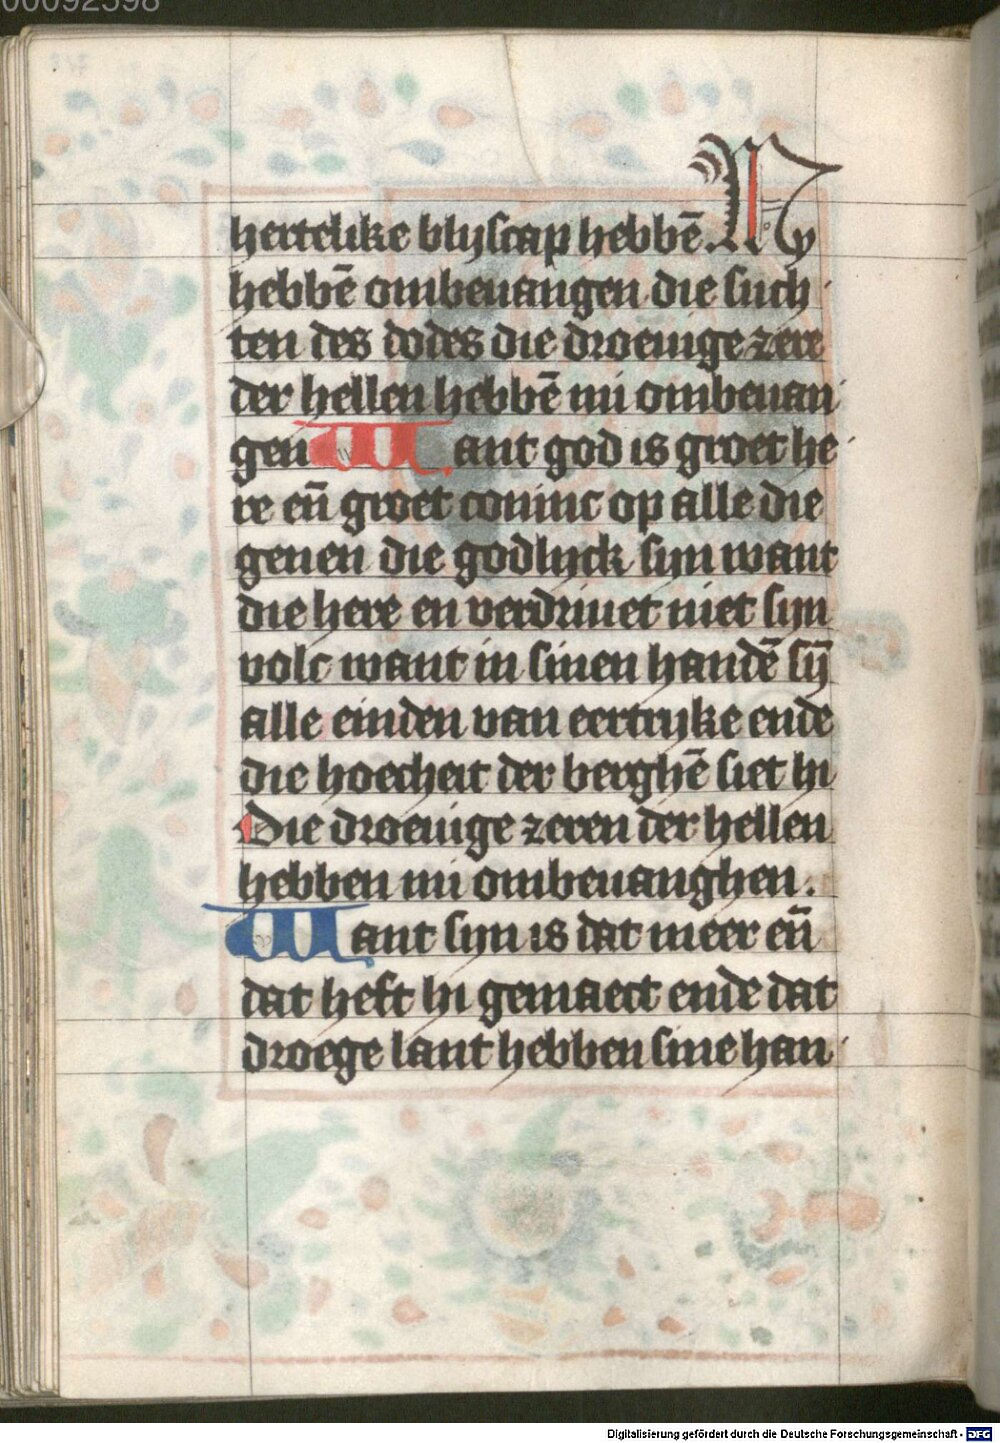 00092598
hertelike blijscap hebbē. My
hebbē ombeuangen die such
ten des dodes die droeuige zere
der hellen hebbē mi ombeuan
gen Want god is groet he
re eñ groet coninc op alle die
genen die godlijck sijn want
die here en verdriuet niet sijn
volc want in sinen handē sijn̄
alle einden van eertrijke ende
die hoecheit der berghē siet hi
Die droeuige zeren der hellen
hebben mi ombeuanghen.
Want sijn is dat meer eñ
dat heft hi gemaect ende dat
droege lant hebben sine han
Digitalisierung gefördert durch die Deutsche Forschungsgemeinschaft - DFG